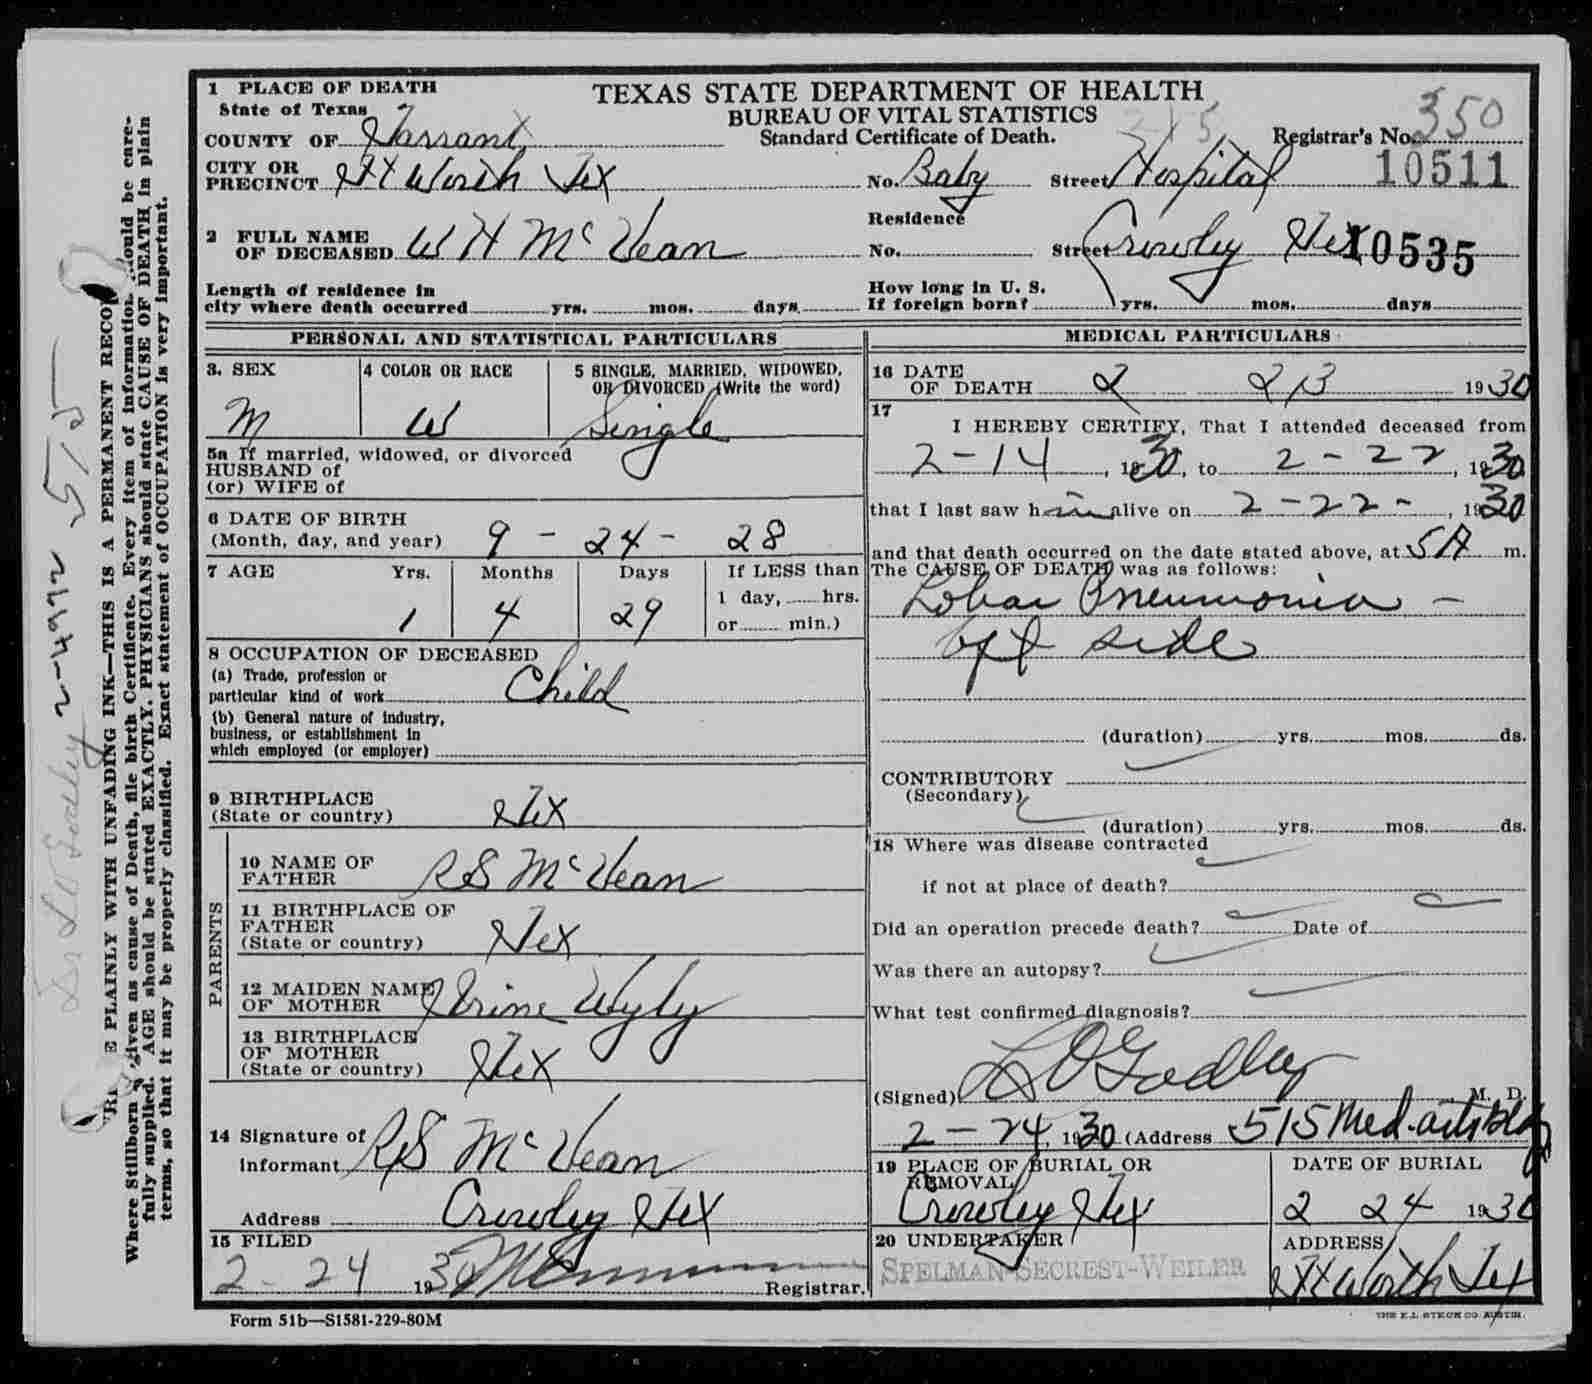 1 PLACE OF DEATH
State of Texas
COUNTY OF Tarrant
CITY OR PRECINCT Ft Worth Tex
TEXAS STATE DEPARTMENT OF HEALTH
BUREAU OF VITAL STATISTICS
Standard Certificate of Death.
Registrar's No. 350
10511
No. Baby Street Hospital
2 FULL NAME OF DECEASED W H McVean
Residence
No. Street Crowley Tex
10535
Length of residence in
city where death occurred yrs. mos. days.
How long in U. S.
If foreign born? yrs. mos. days
PERSONAL AND STATISTICAL PARTICULARS
3. SEX
M
4 COLOR OR RACE
W
5 SINGLE, MARRIED, WIDOWED,
OR DIVORCED (Write the word)
Single
5a If married, widowed, or divorced
HUSBAND of
(or) WIFE of
6 DATE OF BIRTH
(Month, day, and year) 9 - 24 - 28
7 AGE Yrs. Months Days If LESS than
1 day, hrs.
or min.)
1 4 29
8 OCCUPATION OF DECEASED
(a) Trade, profession or
particular kind of work Child
(b) General nature of industry,
business, or establishment in
which employed (or employer)
9 BIRTHPLACE
(State or country) Tex
PARENTS
10 NAME OF
FATHER R S McVean
11 BIRTHPLACE OF
FATHER
(State or country) Tex
12 MAIDEN NAME
OF MOTHER Wyly
13 BIRTHPLACE
OF MOTHER
(State or country) Tex
14 Signature of
Informant R S McVean
Address Crowley Tex
15 FILED
2-24 1930 Registrar.
MEDICAL PARTICULARS
16 DATE
OF DEATH 2 23 1930
17
I HEREBY CERTIFY, That I attended deceased from
2-14, 1930, to 2-22, 1930
that I last saw him alive on 2-22-, 1930
and that death occurred on the date stated above, at 5A m.
The CAUSE OF DEATH was as follows:
Lobar Pneumonia -
left side
(duration) yrs. mos. ds.
CONTRIBUTORY
(Secondary)
(duration) yrs. mos. ds.
18 Where was disease contracted
if not at place of death?
Did an operation precede death? Date of
Was there an autopsy?
What test confirmed diagnosis?
(Signed) L O Godley M. D.
2-24, 1930 (Address 515 Med. arts Bldg
19 PLACE OF BURIAL OR
REMOVAL
Crowley Tex
DATE OF BURIAL
2 24 1930
20 UNDERTAKER
SPELMAN-SECREST-WEILER
ADDRESS
Ft Worth Tex
Form 51b—S1581-229-80M
THE E.L. STECK CO. AUSTIN.
E PLAINLY WITH UNFADING INK—THIS IS A PERMANENT RECO
Where Stillborn is given as cause of Death, file birth Certificate. Every item of information should be care-
fully supplied. AGE should be stated EXACTLY. PHYSICIANS should state CAUSE OF DEATH in plain
terms, so that it may be properly classified. Exact statement of OCCUPATION is very important.